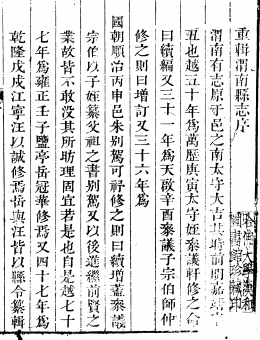 重輯渭南縣志序
渭南有志原守邑之南大守大吉其時前明嘉靖辛
丑也越五十年為萬歷庚寅太守姪叅議軒修之命
曰續編又三十一年為天啟辛酉叅議子宗伯師仲
修之則曰增訂又三十六年為
國朝順治丙申邑朱別駕可衧修之則曰續增葢叅議
宗伯以子姪纂父祖之書別駕又以後進繼前賢之
業故皆不敢沒其所昉理固宜若是也自是越七十
七年為雍正壬子鹽亭岳冠華修焉又四十七年為
乾隆戊戌江寧汪以誠修焉岳與汪皆以縣令纂輯